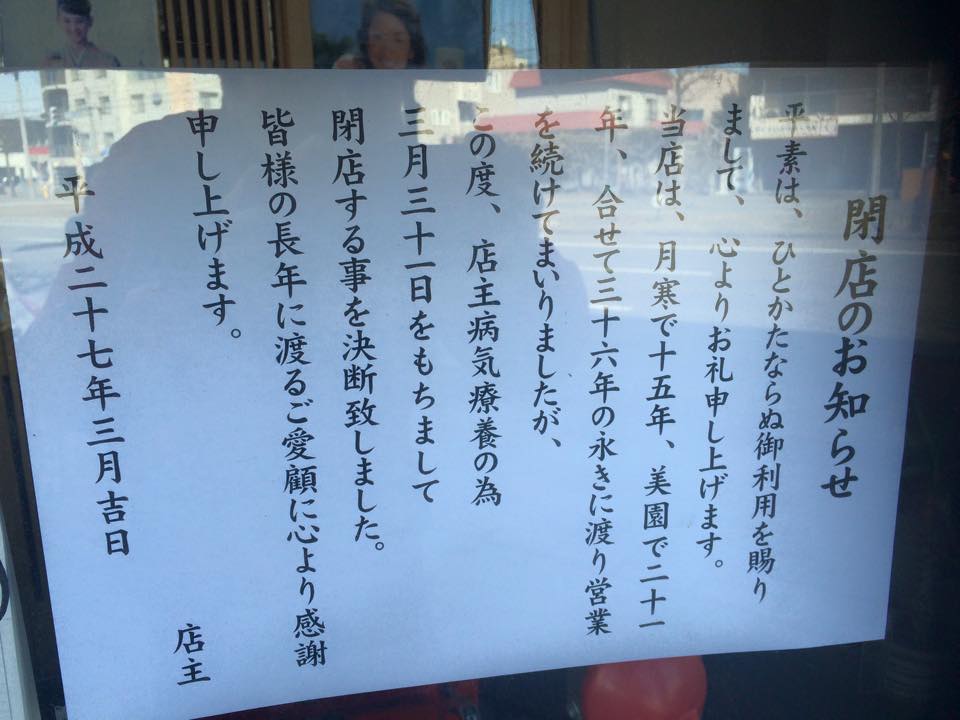 閉店のお知らせ
平素は、ひとかたならぬ御利用を賜り
まして、心よりお礼申し上げます。
当店は、月寒で十五年、美園で二十一
年、合せて三十六年の永きに渡り営業
を続けてまいりましたが、
この度、店主病気療養の為
三月三十一日をもちまして
閉店する事を決断致しました。
皆様の長年に渡るご愛顧に心より感謝
申し上げます。
店主
平成二十七年三月吉日